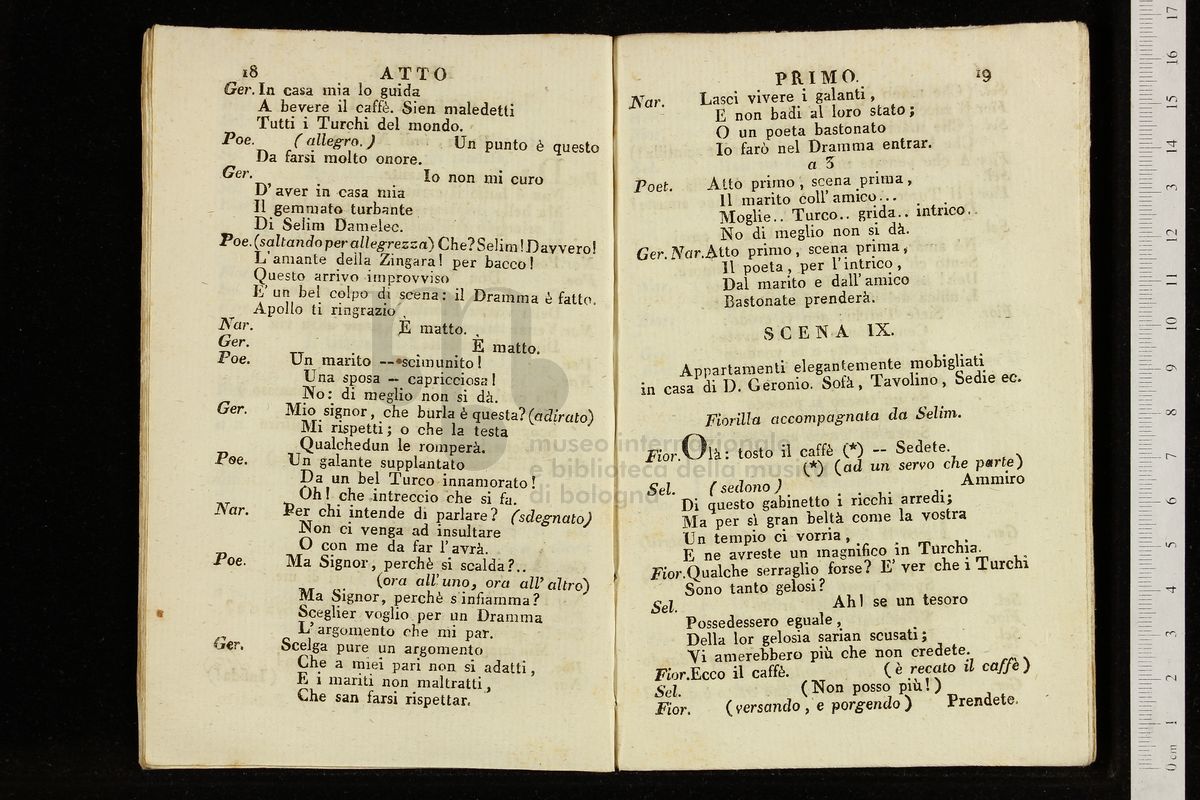 18 ATTO
Ger. In casa mia lo guida
A bevere il caffè. Sien maledetti
Tutti i Turchi del mondo.
Poe. (allegro.) Un punto è questo
Da farsi molto onore.
Ger. Io non mi curo
D'aver in casa mia
Il gemmato turbante
Di Selim Damelec.
Poe. (saltando per allegrezza) Che? Selim! Davvero!
L'amante della Zingara! per bacco!
Questo arrivo improvviso
E' un bel colpo di scena: il Dramma è fatto.
Apollo ti ringrazio.
Nar. È matto.
Ger. È matto.
Poe. Un marito -- scimunito!
Una sposa -- capricciosa!
No: di meglio non si dà.
Ger. Mio signor, che burla è questa? (adirato)
Mi rispetti; o che la testa
Qualchedun le romperà.
Poe. Un galante supplantato
Da un bel Turco innamorato!
Oh! che intreccio che si fa.
Nar. Per chi intende di parlare? (sdegnato)
Non ci venga ad insultare
O con me da far l'avrà.
Poe. Ma Signor, perchè si scalda?..
(ora all'uno, ora all'altro)
Ma Signor, perchè s'infiamma?
Sceglier voglio per un Dramma
L'argomento che mi par.
Ger. Scelga pure un argomento
Che a miei pari non si adatti,
E i mariti non maltratti,
Che san farsi rispettar.
PRIMO. 19
Nar. Lasci vivere i galanti,
E non badi al loro stato;
O un poeta bastonato
Io farò nel Dramma entrar.
a 3
Poet. Atto primo, scena prima,
Il marito coll'amico...
Moglie.. Turco.. grida.. intrico..
No di meglio non si dà.
Ger. Nar. Atto primo, scena prima,
Il poeta, per l'intrico,
Dal marito e dall'amico
Bastonate prenderà.
SCENA IX.
Appartamenti elegantemente mobigliati
in casa di D. Geronio. Sofà, Tavolino, Sedie ec.
Fiorilla accompagnata da Selim.
Fior. Olà: tosto il caffè (*) -- Sedete.
(*) (ad un servo che parte)
Sel. (sedono) Ammiro
Di questo gabinetto i ricchi arredi;
Ma per sì gran beltà come la vostra
Un tempio ci vorria,
E ne avreste un magnifico in Turchia.
Fior. Qualche serraglio forse? E' ver che i Turchi
Sono tanto gelosi?
Sel. Ah! se un tesoro
Possedessero eguale,
Della lor gelosia sarian scusati;
Vi amerebbero più che non credete.
Fior. Ecco il caffè. (è recato il caffè)
Sel. (Non posso più!)
Fior. (versando, e porgendo) Prendete.
museo internazionale
e biblioteca della musica
di bologna
0 cm 1 2 3 4 5 6 7 8 9 10 11 12 13 14 15 16 17